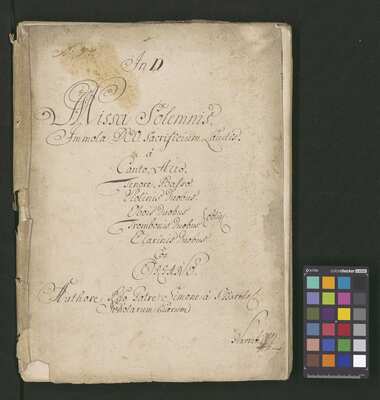 In D
Missa Solemnis.
Immola DEO Sacrificium Laudis.
à
Canto, Alto.
Tenore, Basso.
Violinis Duobus.
Obois Duobus
Trombonis Duobus
Clarinis Duobus.
Con
ORGANO.
Authore Rdo Patre Simone à S.
Scholarum Piarum